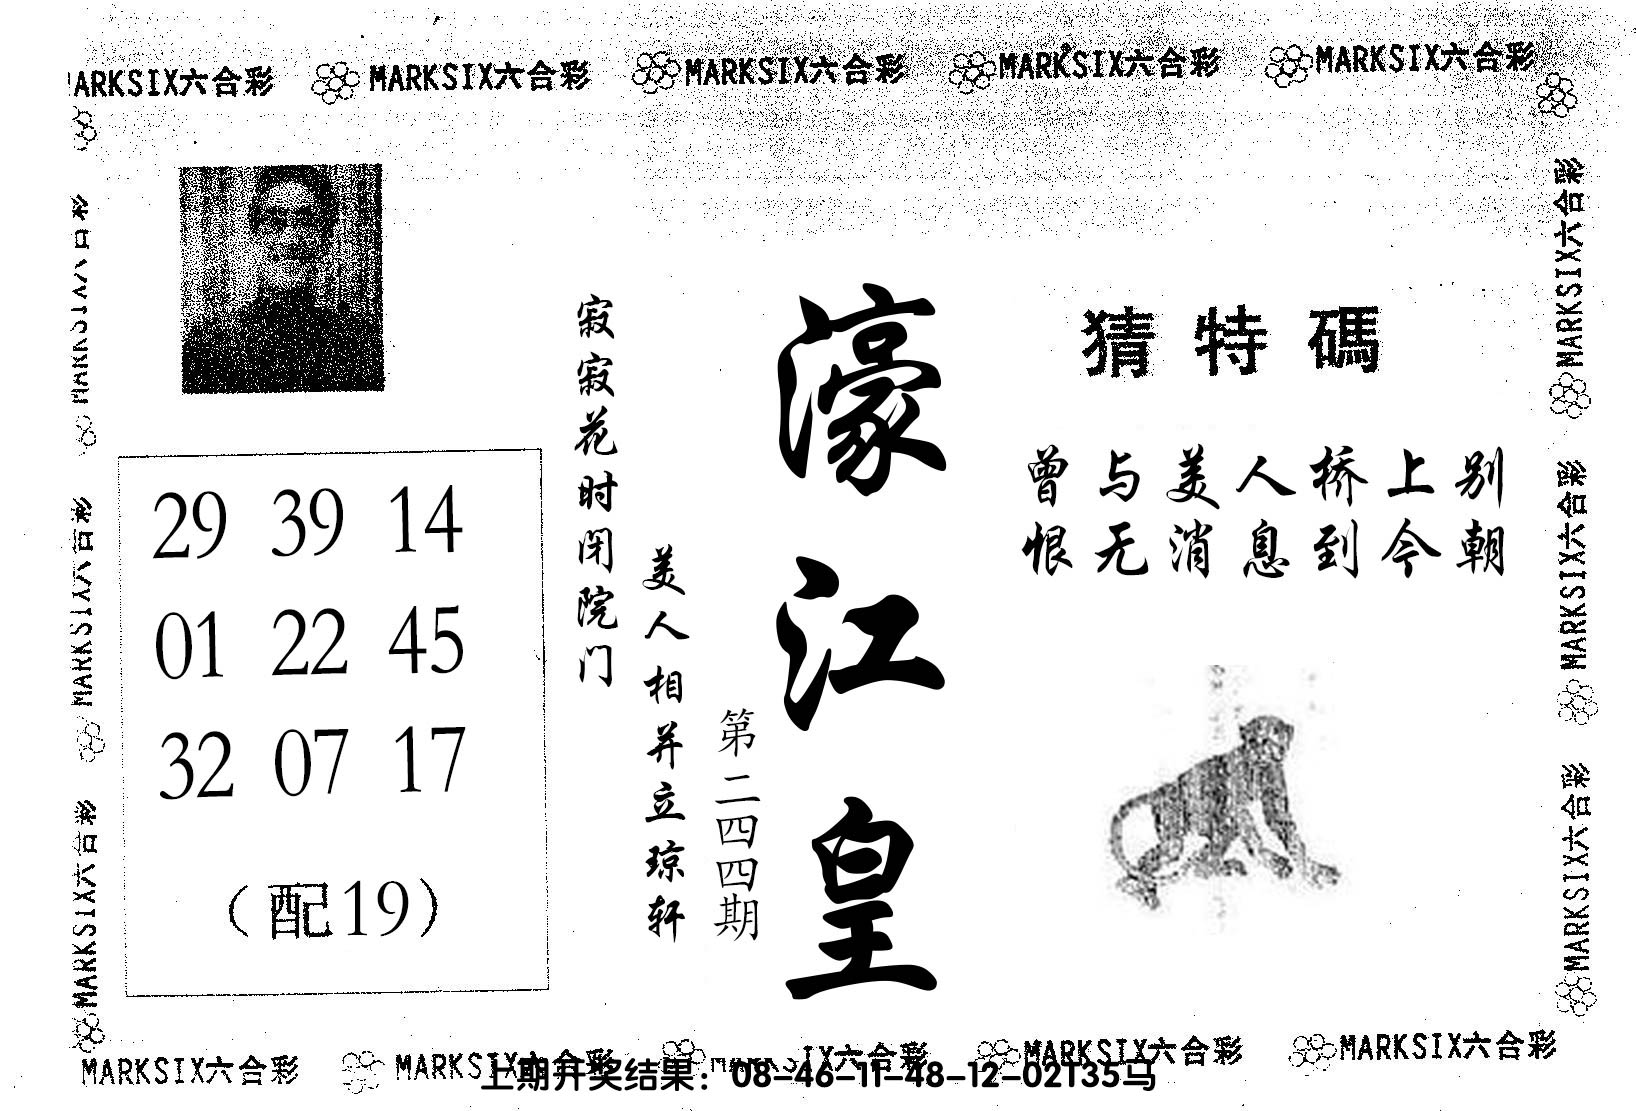 MARKSIX六合彩 MARKSIX六合彩 MARKSIX六合彩 MARKSIX六合彩
ARKSIX六合彩
濠江皇
第二四四期
寂寂花时闭院门
美人相并立琼轩
猜特碼
曾与美人桥上别
恨无消息到今朝
29 39 14
01 22 45
32 07 17
（配19）
MARKSIX六合彩
MARKSIX六合彩
MARKSIX六合彩
MARKSIX六合彩
MARKSIX六合彩
MARKSIX六合彩
MARKSIX六合彩 MARKSIX六合彩 IX六合彩 MARKSIX六合彩 MARKSIX六合彩
上期开奖结果：08-46-11-48-12-02T35马